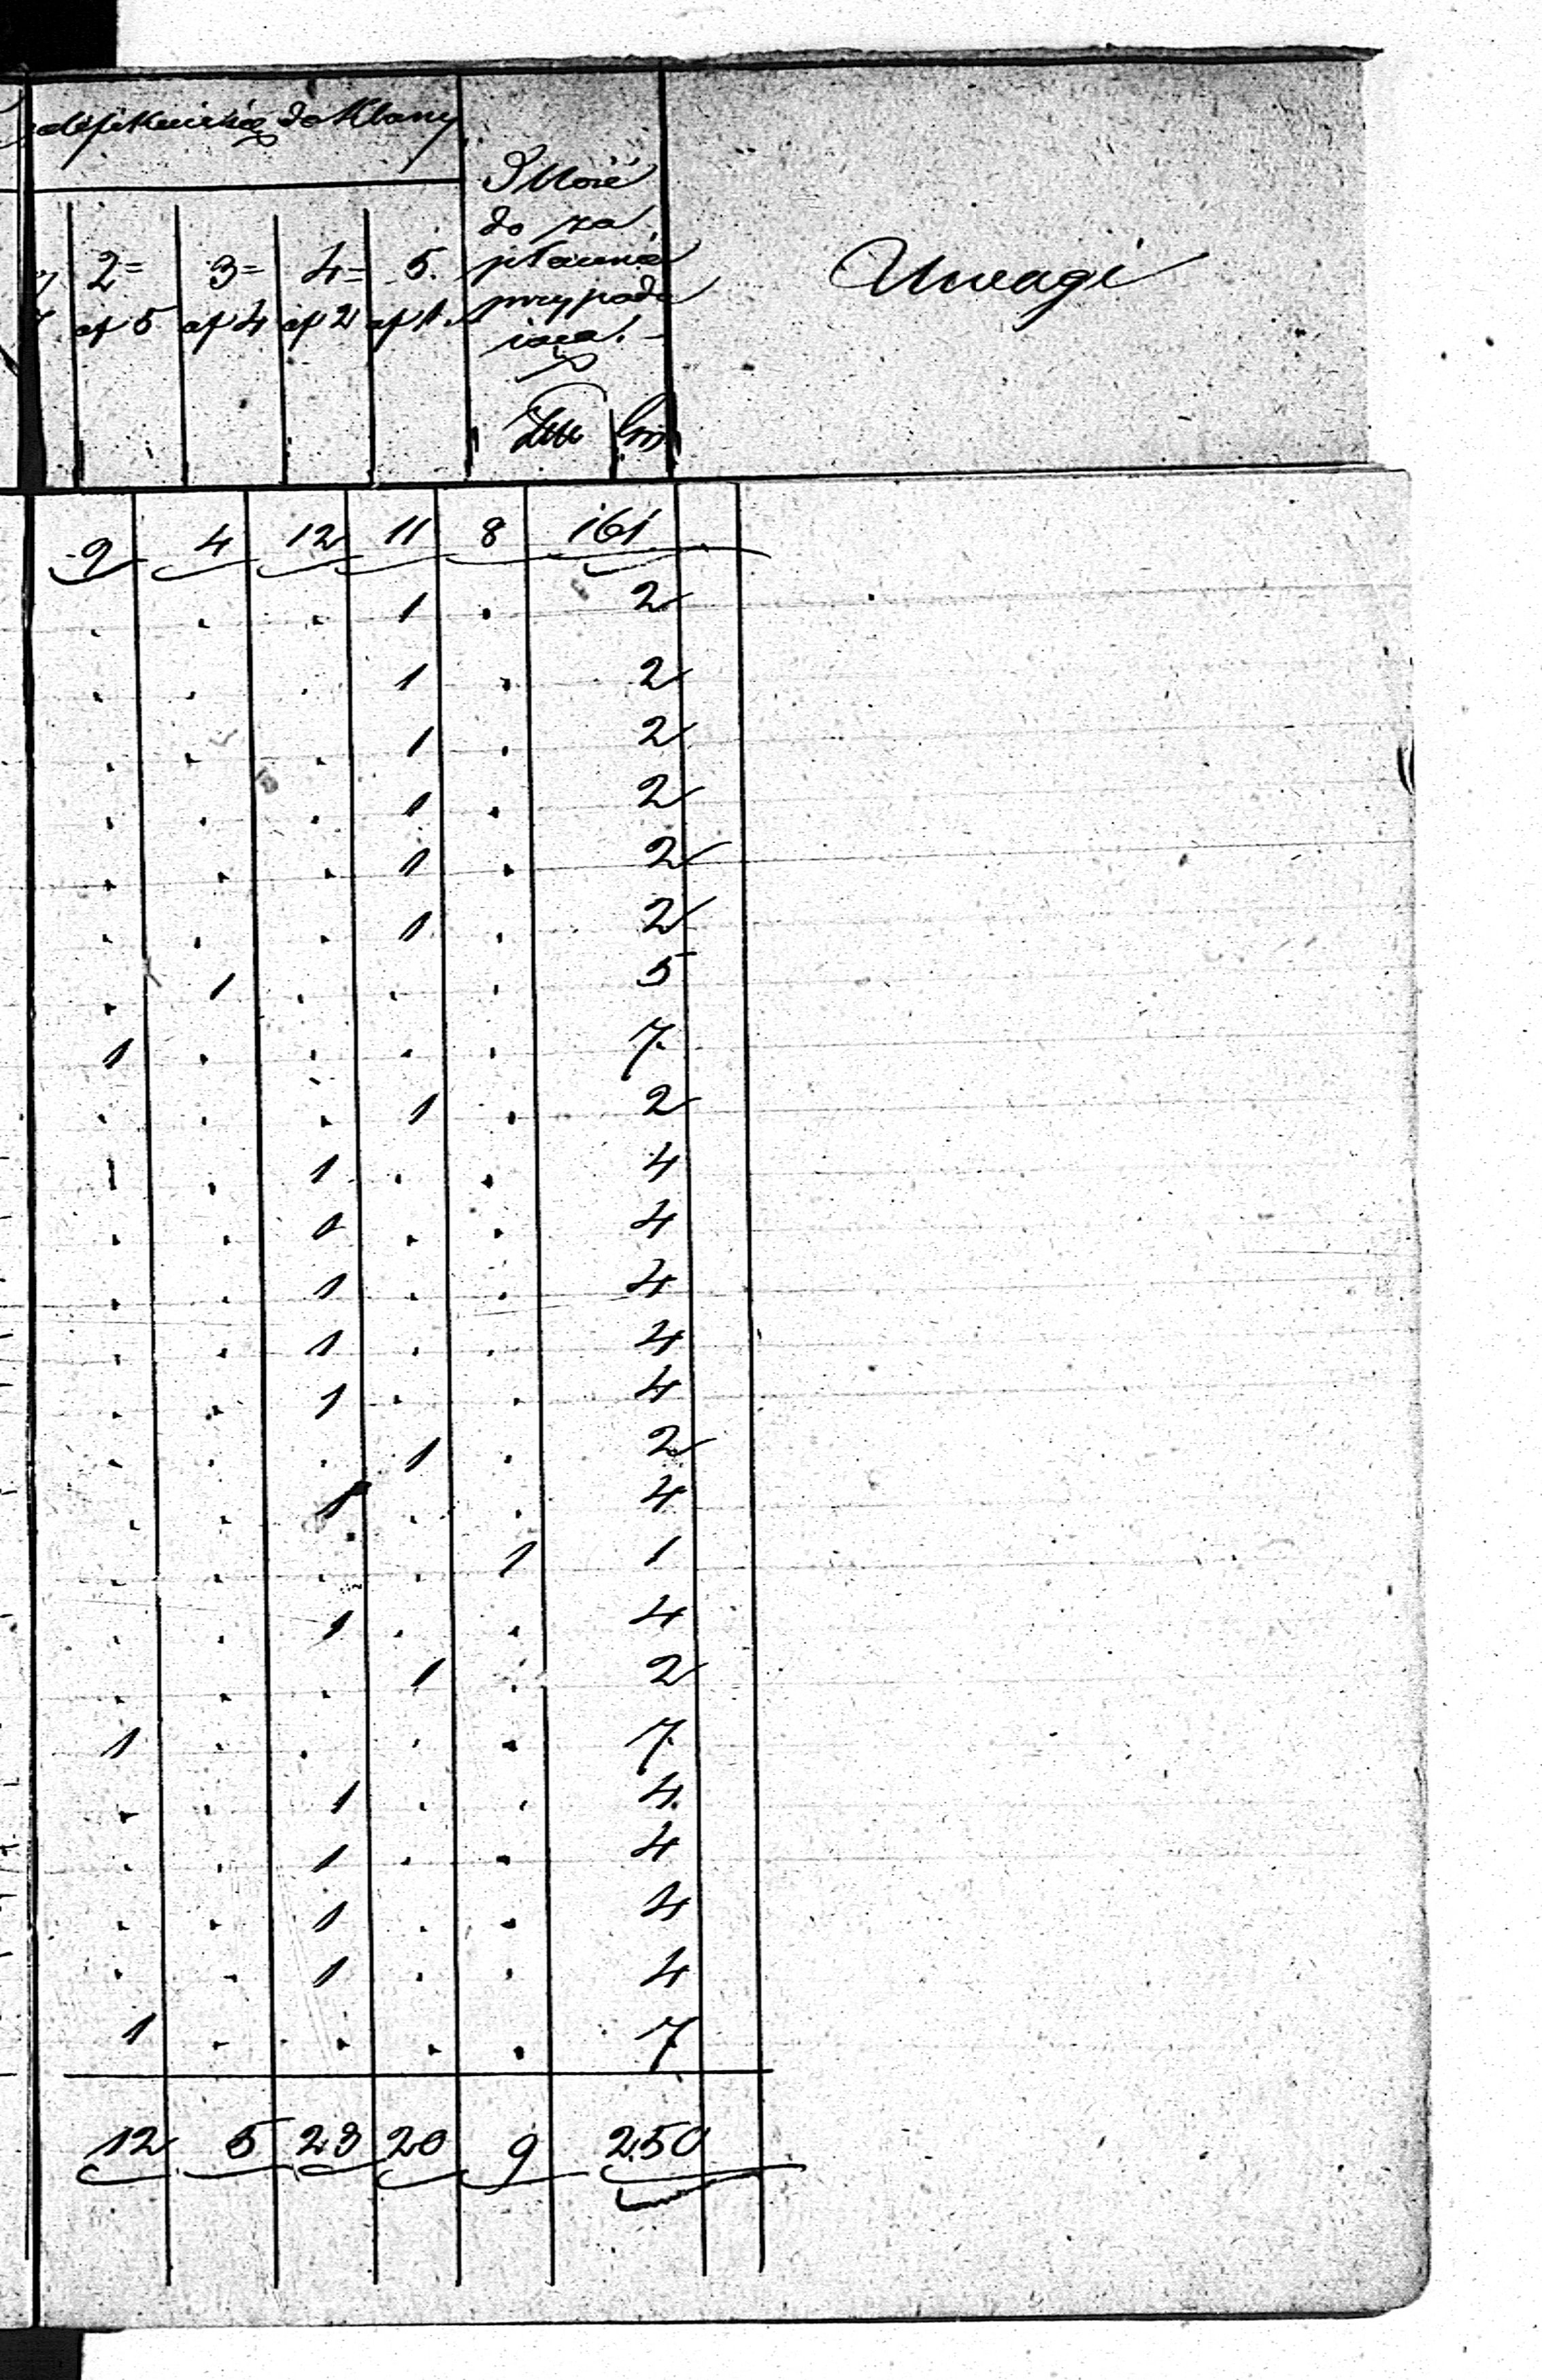 do Klassy
2= 3= 4= 5.
af 5 af 4 af 2 af 1.
Illość
do za
płacenia
przypada
iąca.
Złt Gr
Uwagi
9 4 12 11 8 161
. . . 1 . 2
. . . 1 . 2
. . . 1 . 2
. . . 1 . 2
. . . 1 . 2
. . . 1 . 2
. 1 . . . 5
1 . . . . 7.
. . . 1 . 2
. . 1 . . 4
. . 1 . . 4
. . 1 . . 4
. . 1 . . 4
. . 1 . . 4
. . . 1 . 2
. . 1 . . 4
. . . . 1 1
. . 1 . . 4
. . . 1 . 2
1 . . . . 7.
. . 1 . . 4.
. . 1 . . 4
. . 1 . . 4
. . 1 . . 4
1 . . . . 7
12 5 23 20 9 250